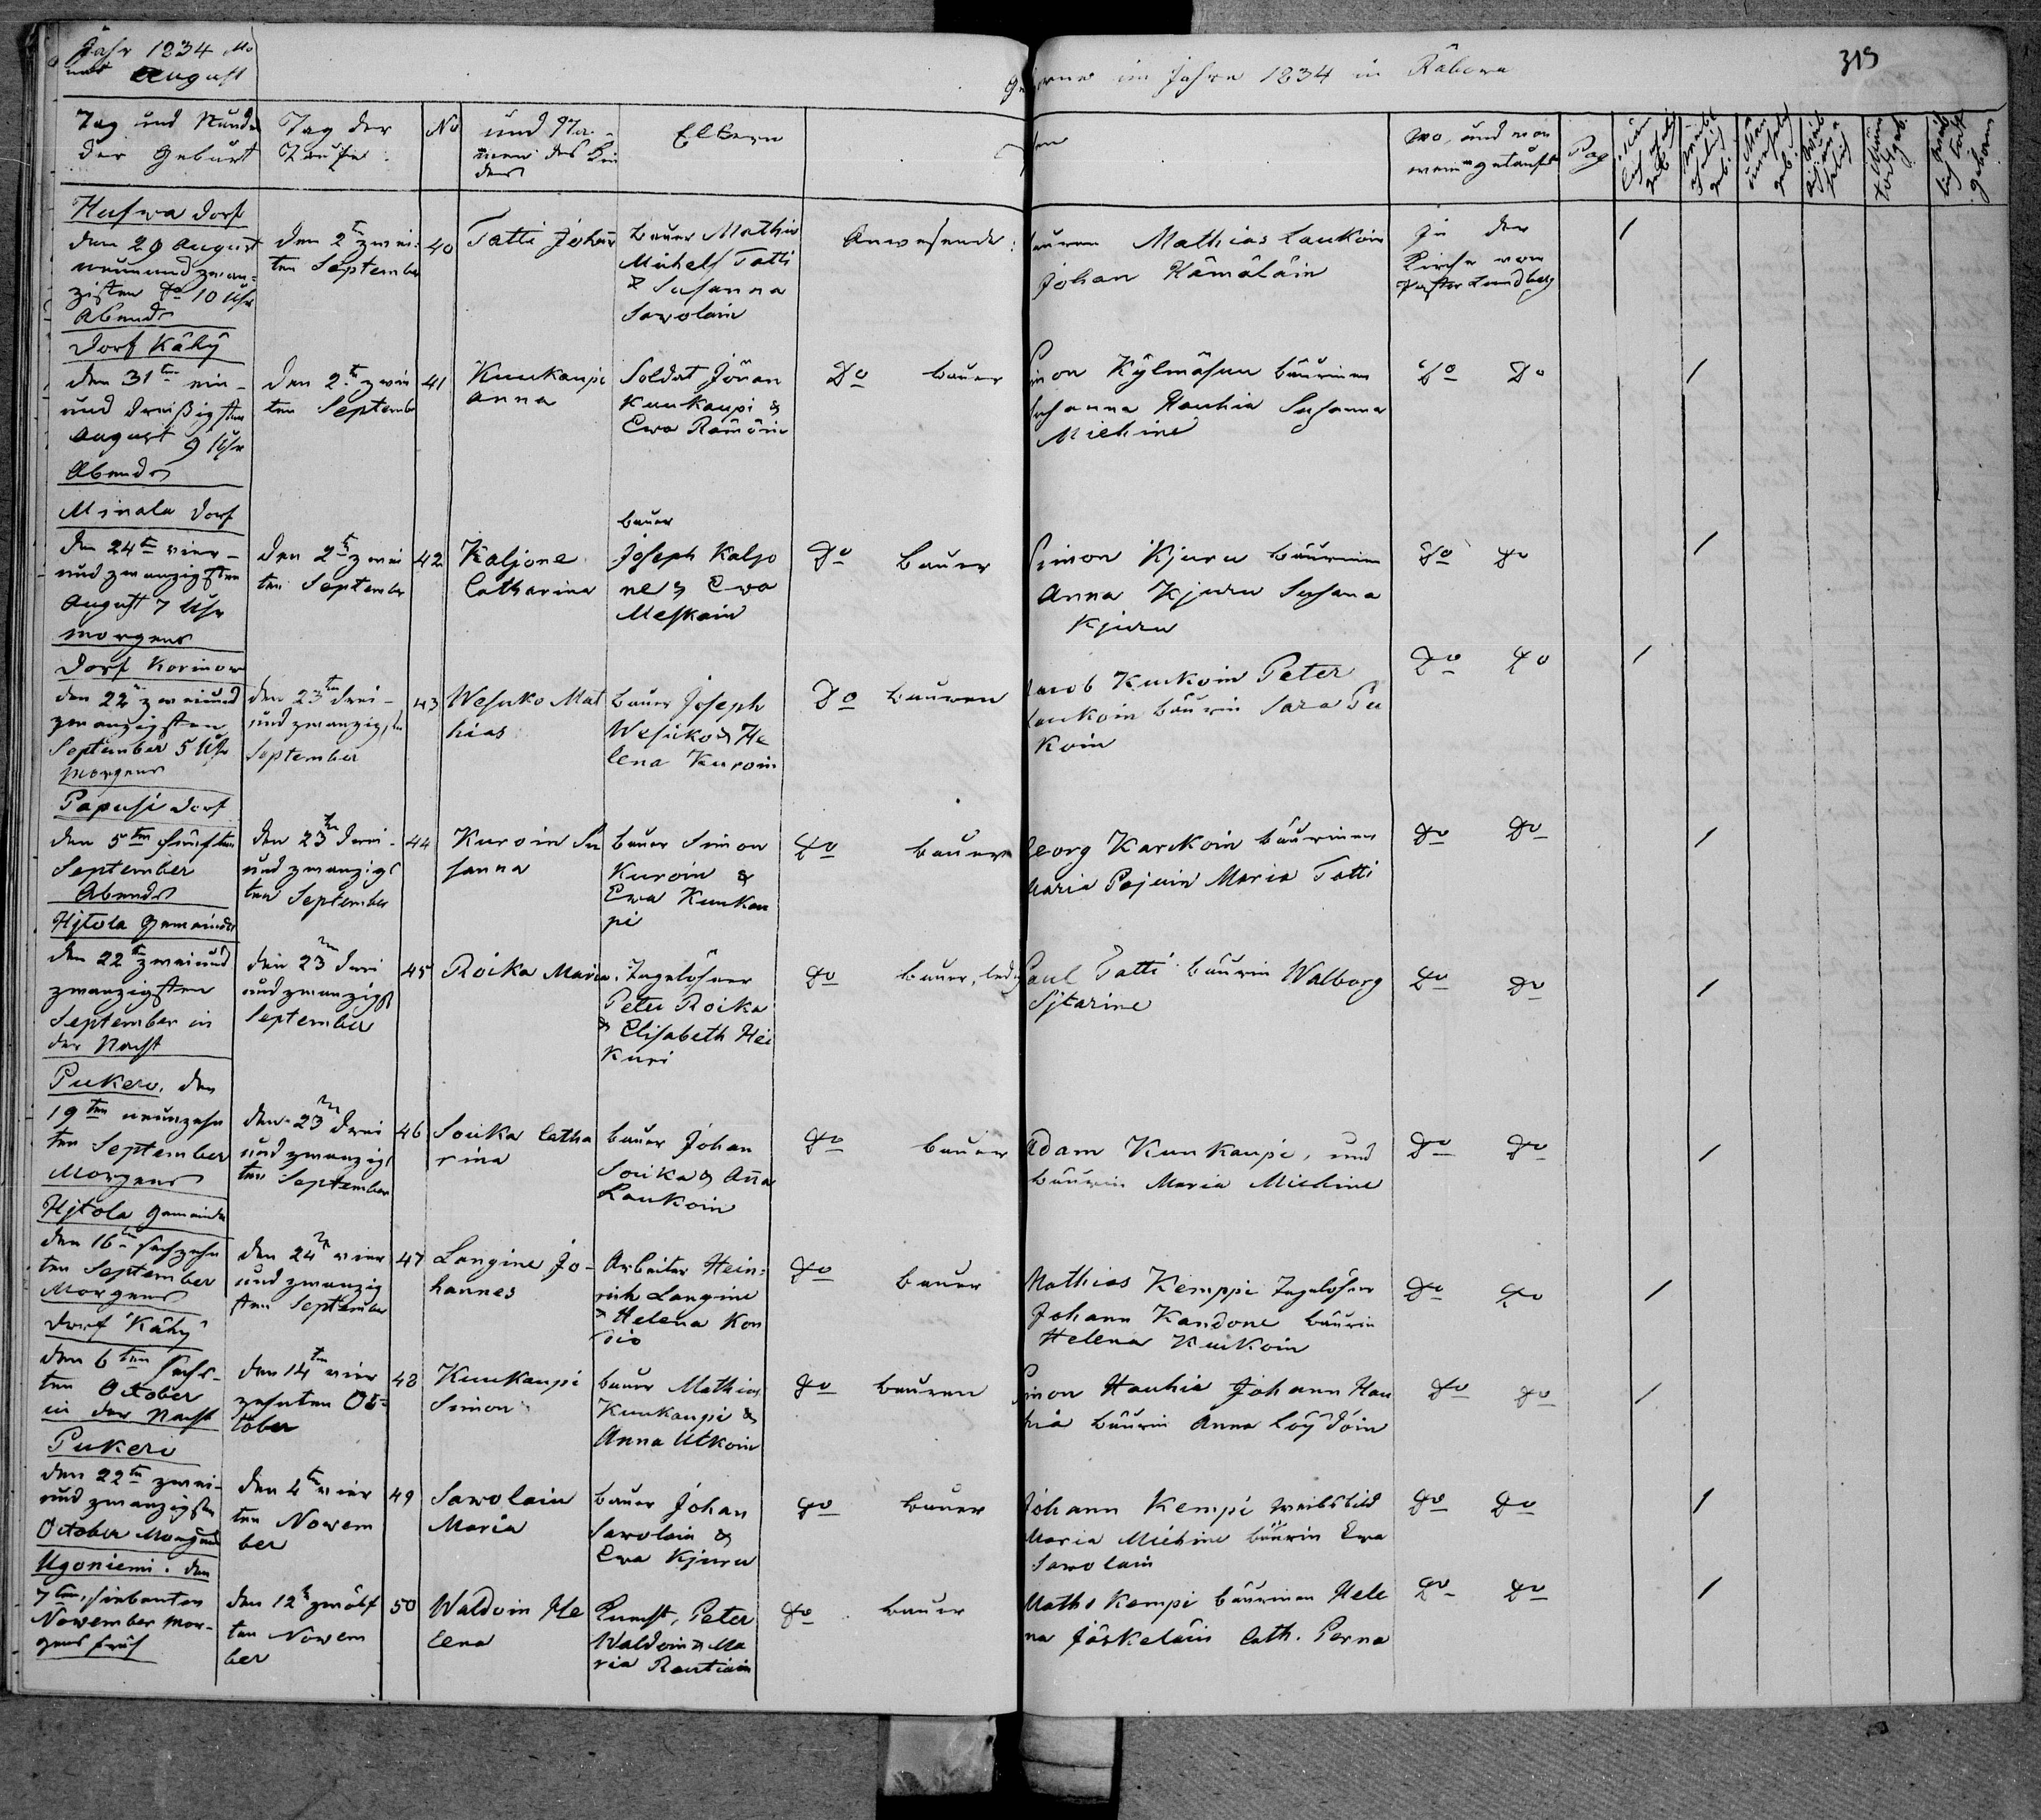 Jahr 1834 Mo
nat August
Geborne im Jahre 1834 in Räbowa
319
Tag und Stunde
der Geburt
Tag der
Taufe:
No
und Na-
men des Kin
des
Eltern
Wo, und von
wem getauft
Pag
Huswa Dorf
den 29 August
neunundzwan-
zigsten do 10 Uhr
Abends
den 2ten zwei-
ten September
40
Tatti Johan
Bauer Mathias
Michels Tatti
& Susanna
Sawolain
Anwesende: Bauren Mathias Laukoin
Johan Hämäläin
In der
Kirche von
Pastor Lundberg
Dorf Kähÿ
den 31ten ein-
und dreißigsten
August 9 Uhr
Abends
den 2ten zwei
ten September
41
Kuukaupi
Anna
Soldat Jöran
Kuukaupi &
Ewa Rämöin
Do Bauer Simon Kylmäsuu Bäurinen
Susanna Hauhia Susanna
Miehine
Do Do
Minala Dorf
den 24ten vier-
und zwanzigsten
August 7 Uhr
morgens
den 2ten zwei
ten September
42
Kaljone
Catharina
Bauer
Joseph Kaljo
ne & Ewa
Meskain
Do Bauer Simon Kjuru Bäurinen
Anna Kjuru Susana
Kjuru
Do Do
Dorf Korinow
den 22ten zweiund
zwanzigsten
September 5 Uhr
Morgens
den 23ten drei-
und zwanzigsten
September
43
Wesuko Mat
hias
Bauer Joseph
Wesuko & He
lena Kuroin
Do Bauren Jacob Kuukoin Peter
Laukoin Bäurin Sara Pu
koin
Do Do
Papusi Dorf
den 5ten fünften
September
Abends
den 23ten drei-
und zwanzigs
ten September
44
Kuroin Su
sanna
Bauer Simon
Kuroin &
Ewa Kuukau
pi
Do Bauern Georg Karckoin Bäurinen
Maria Pajuin Maria Tatti
Do Do
Hjtola Gemeinde
den 22ten zweiund
zwanzigsten
September in
der Nacht
den 23ten drei
und zwanzigst
September
45
Roika Maria
Tagelöhner
Peter Roika
& Elisabeth Hei
kuri
Do Bauer, ledig Paul Tatti Bäurin Walborg
Sjtarine
Do Do
Pukero. den
19ten neunzehn
ten September
Morgens
den 23ten drei
und zwanzigs
ten September
46
Souka Catha
rina
Bauer Johan
Souka & Ana
Laukoin
Do Bauer Adam Kuukaupi, und
Bäurin Maria Miehine
Do Do
Hjtola Gemeinde
den 16ten sechzehn
ten September
Morgens
den 24ten vier
und zwanzig
sten September
47
Langine Jo-
hannes
Arbeiter Hein-
rich Langine
& Helena Kon
dio
Do Bauer Mathias Kemppi Tagelöhner
Johann Kandone Bäurin
Helena Kuukoin
Do Do
Dorf Kähÿ
den 6ten sechs-
ten October
in der Nacht
den 14ten vier
zehnten Oc-
tober
48
Kuukaupi
Simon
Bauer Mathias
Kuukaupi &
Anna Utkoin
Do Bauren Simon Hauhia Johann Hau
hia Bäurin Anna Löydöin
Do Do
Pukero
den 22ten zwei-
und zwanzigsten
October Morgens
den 4ten vier
ten Novem
ber
49
Sawolain
Maria
Bauer Johan
Sawolain &
Ewa Kjuru
Do Bauer Johann Kempi Weibsbild
Maria Miehine Bäurin Ewa
Sawolain
Do Do
Ugoniemi. den
7ten siebenten
November Mor-
gens früh
den 12ten zwölf
ten Novem
ber
50
Waldoin He
lena
Knecht, Peter
Waldoin & Ma
ria Rautiain
Do Bauer Maths Kempi Bäurinen Hele
na Jäskeläin Cath. Perna
Do Do